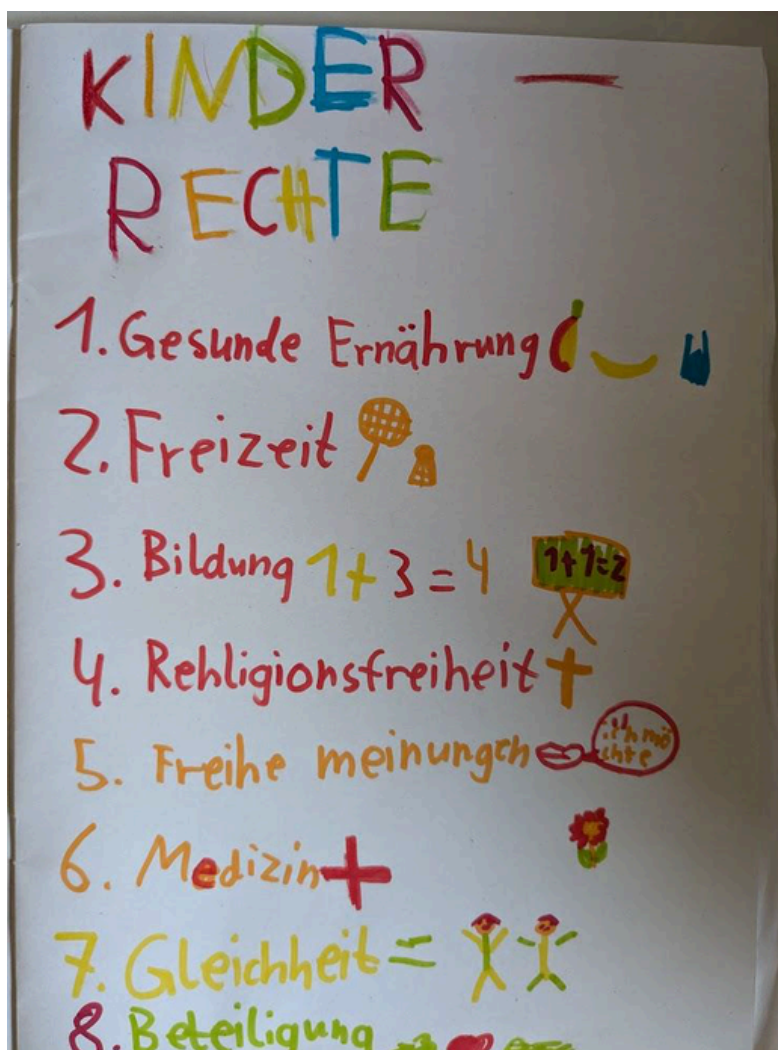 KINDER —
RECHTE
1. Gesunde Ernährung
2. Freizeit
3. Bildung 1+3=4 1+1=2
4. Rehligionsfreiheit
5. Freihe meinungen ich mö
chte
6. Medizin
7. Gleichheit =
8. Beteiligung